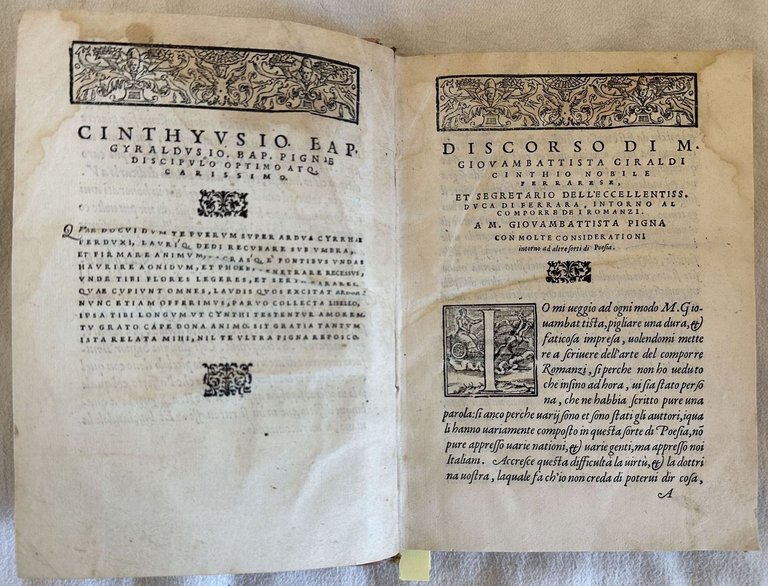 CINTHYVS IO. BAP.
GYRALDVS IO. BAP. PIGNAE
DISCIPVLO OPTIMO ATQ.
CARISSIMO.
QVAE DOCVI DVM TE PVERVM SVPER ARDVA CYRRHAE
PERDVXI, LAVRIQ. DEDI RECVBARE SVB VMBRA,
ET FIRMARE ANIMVM, SACRASQ'E FONTIBVS VNDAS
HAVRIRE AONIDVM, ET PHOEBI PENETRARE RECESSVS,
VNDE TIBI FLORES LEGERES, ET SERTA PARARES
QVAE CVPIVNT OMNES, LAVDIS QVOS EXCITAT ARDOR:
NVNC ETIAM OFFERIMVS, PARVO COLLECTA LIBELLO,
IVSA TIBI LONGVM VT CYNTHI TESTENTVR AMOREM
TV GRATO CAPE DONA ANIMO. SIT GRATIA TANTVM
ISTA RELATA MIHI, NIL TE VLTRA PIGNA REPOSCO.
DISCORSO DI M.
GIOVAMBATTISTA GIRALDI
CINTHIO NOBILE
FERRARESE,
ET SEGRETARIO DELL'ECCELLENTISS.
DVCA DI FERRARA, INTORNO AL
COMPORRE DE I ROMANZI.
A M. GIOVAMBATTISTA PIGNA
CON MOLTE CONSIDERATIONI
intorno ad altre sorti di Poesia.
IO mi ueggio ad ogni modo M. Gio-
uambattista, pigliare una dura, &
faticosa impresa, uolendomi mette
re a scriuere dell'arte del comporre
Romanzi, si perche non ho ueduto
che insino ad hora, ui sia stato perso
na, che ne habbia scritto pure una
parola: si anco perche uarij sono et sono stati gli auttori, iqua
li hanno uariamente composto in questa sorte di Poesia, nō
pure appresso uarie nationi, & uarie genti, ma appresso noi
Italiani. Accresce questa difficultà la uirtù, & la dottri
na uostra, laquale fà ch'io non creda di poterui dir cosa,
A